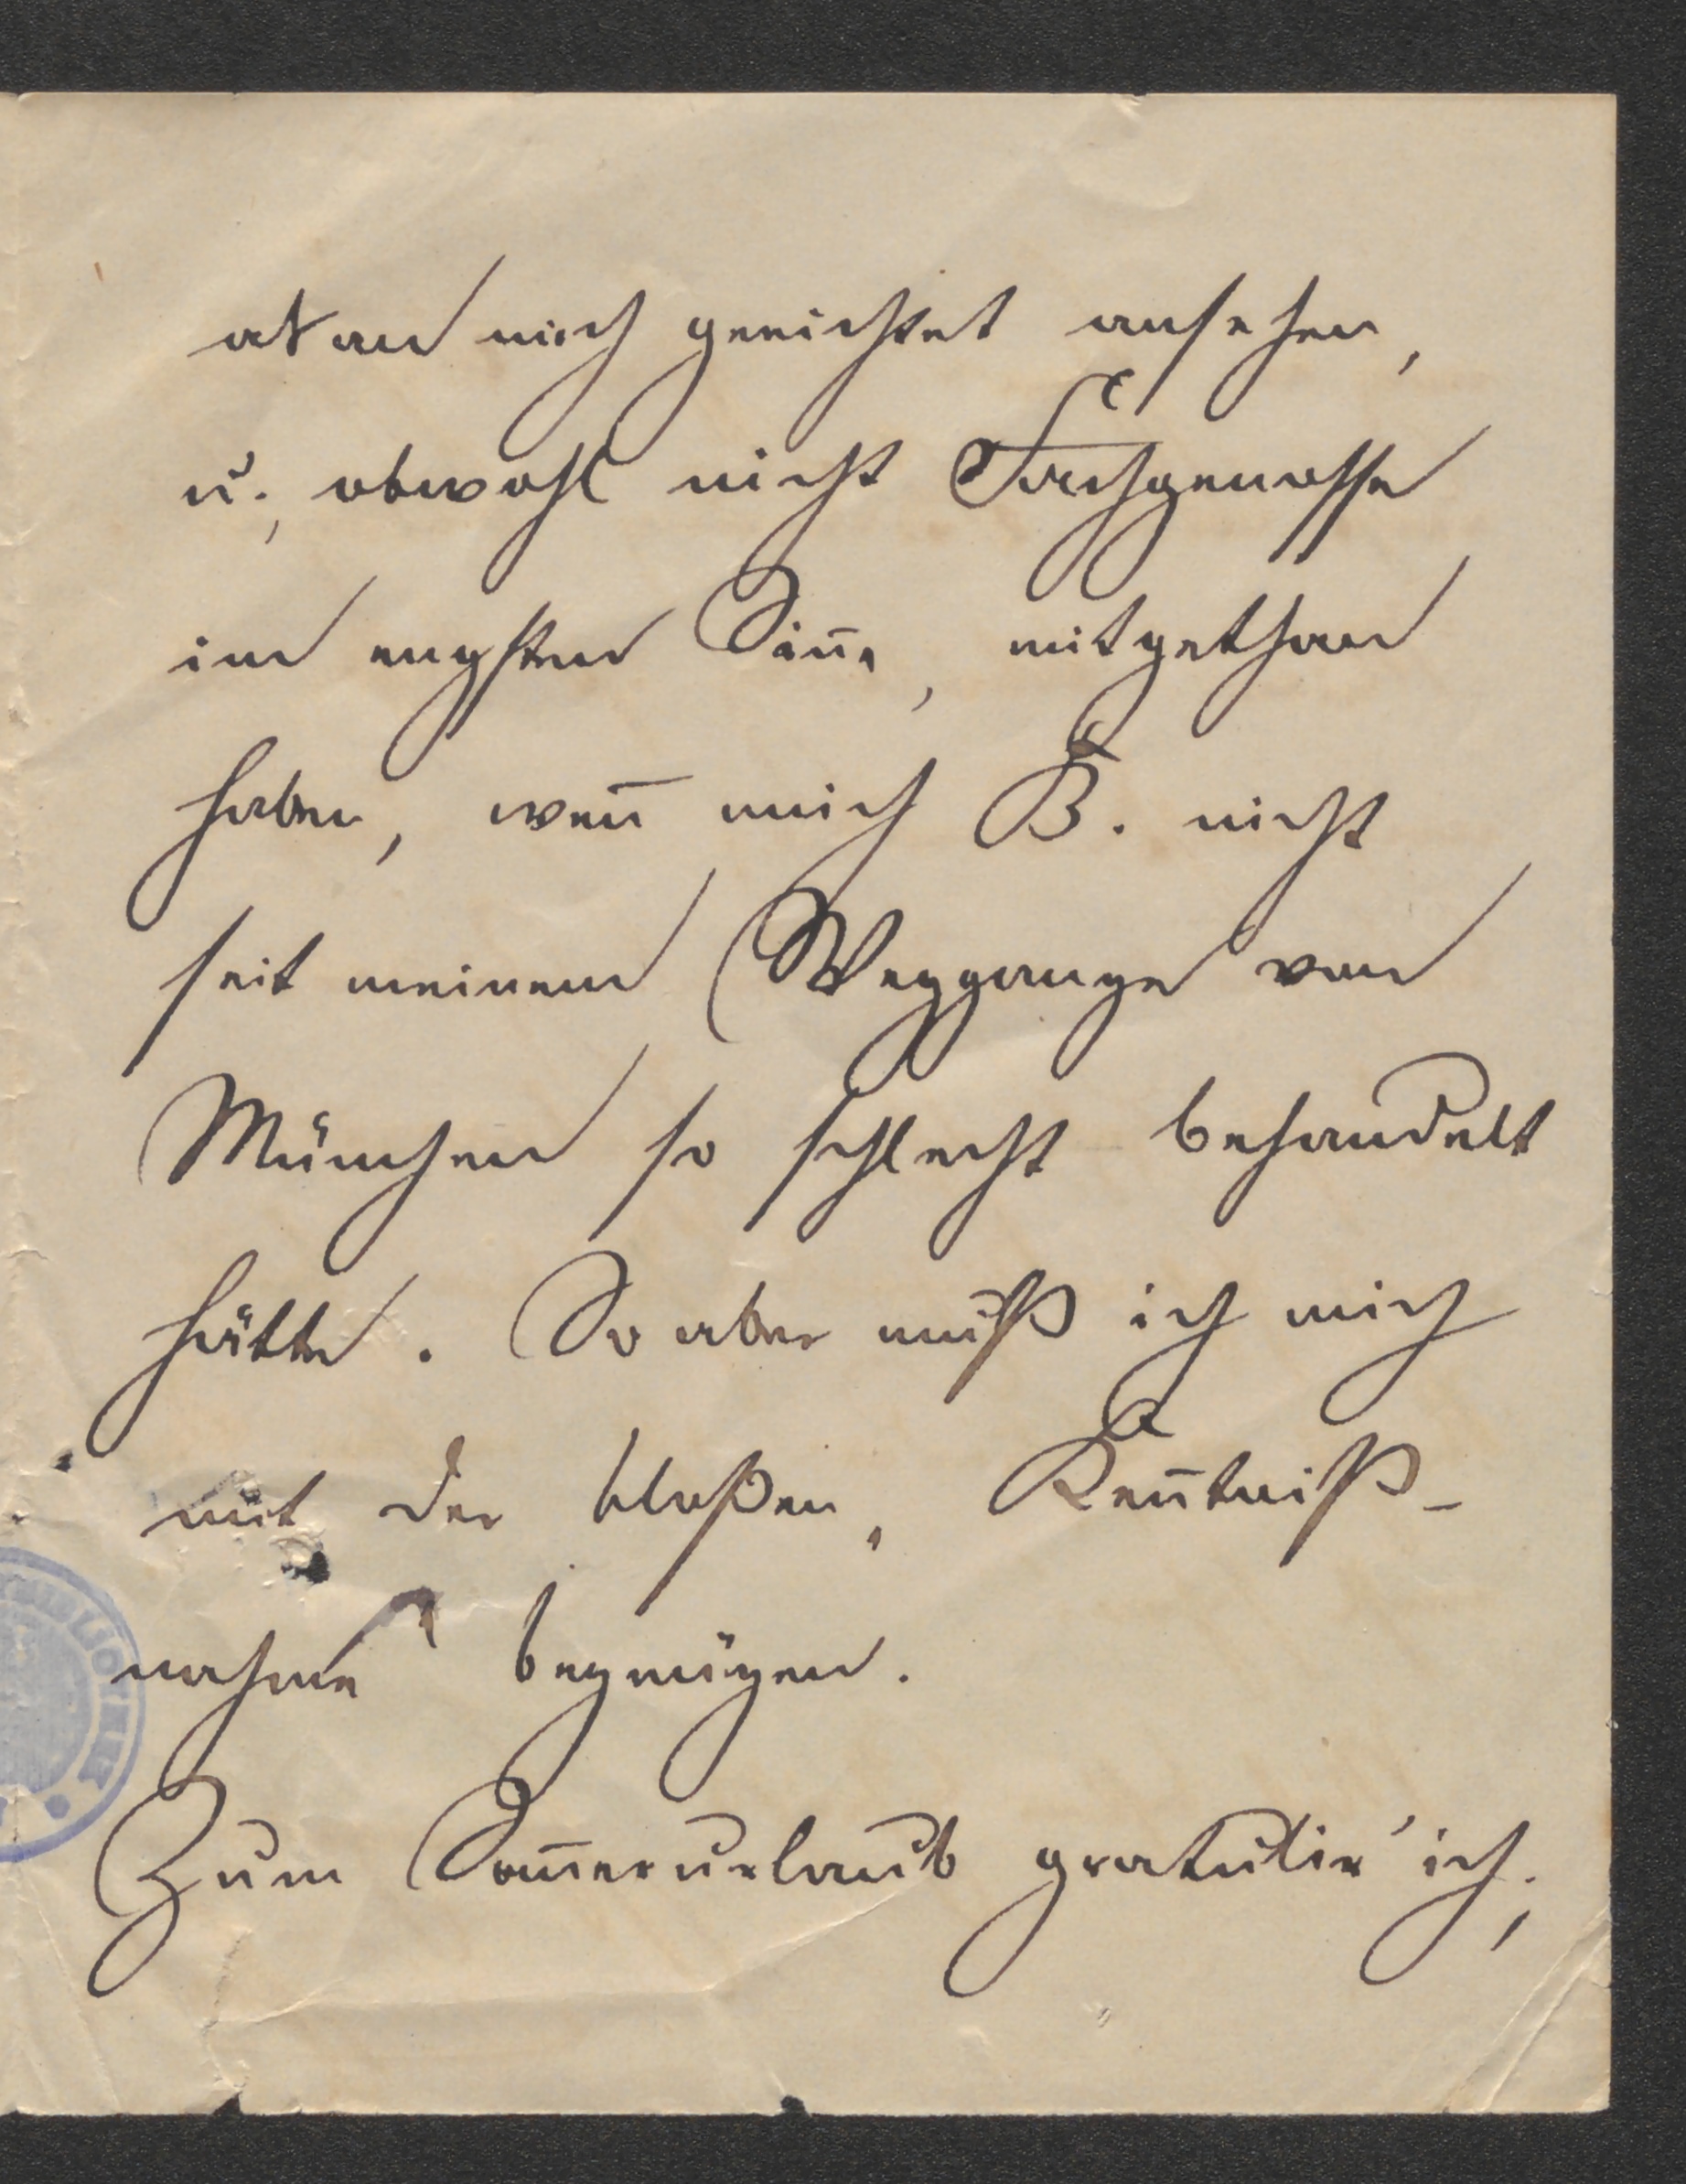 at an mich gerichtet ansehen,
u., obwohl nicht Fachgenosse
im engsten Sinne, mitgethan
haben, wen̅ mich B. nicht
seit meinem Weggange von
München so schlecht behandelt
hätte. So aber muß ich mich
mit der bloßen, Ken̅tniß-
nahme begnügen.
Zum Som̅erurlaub gratulir' ich;